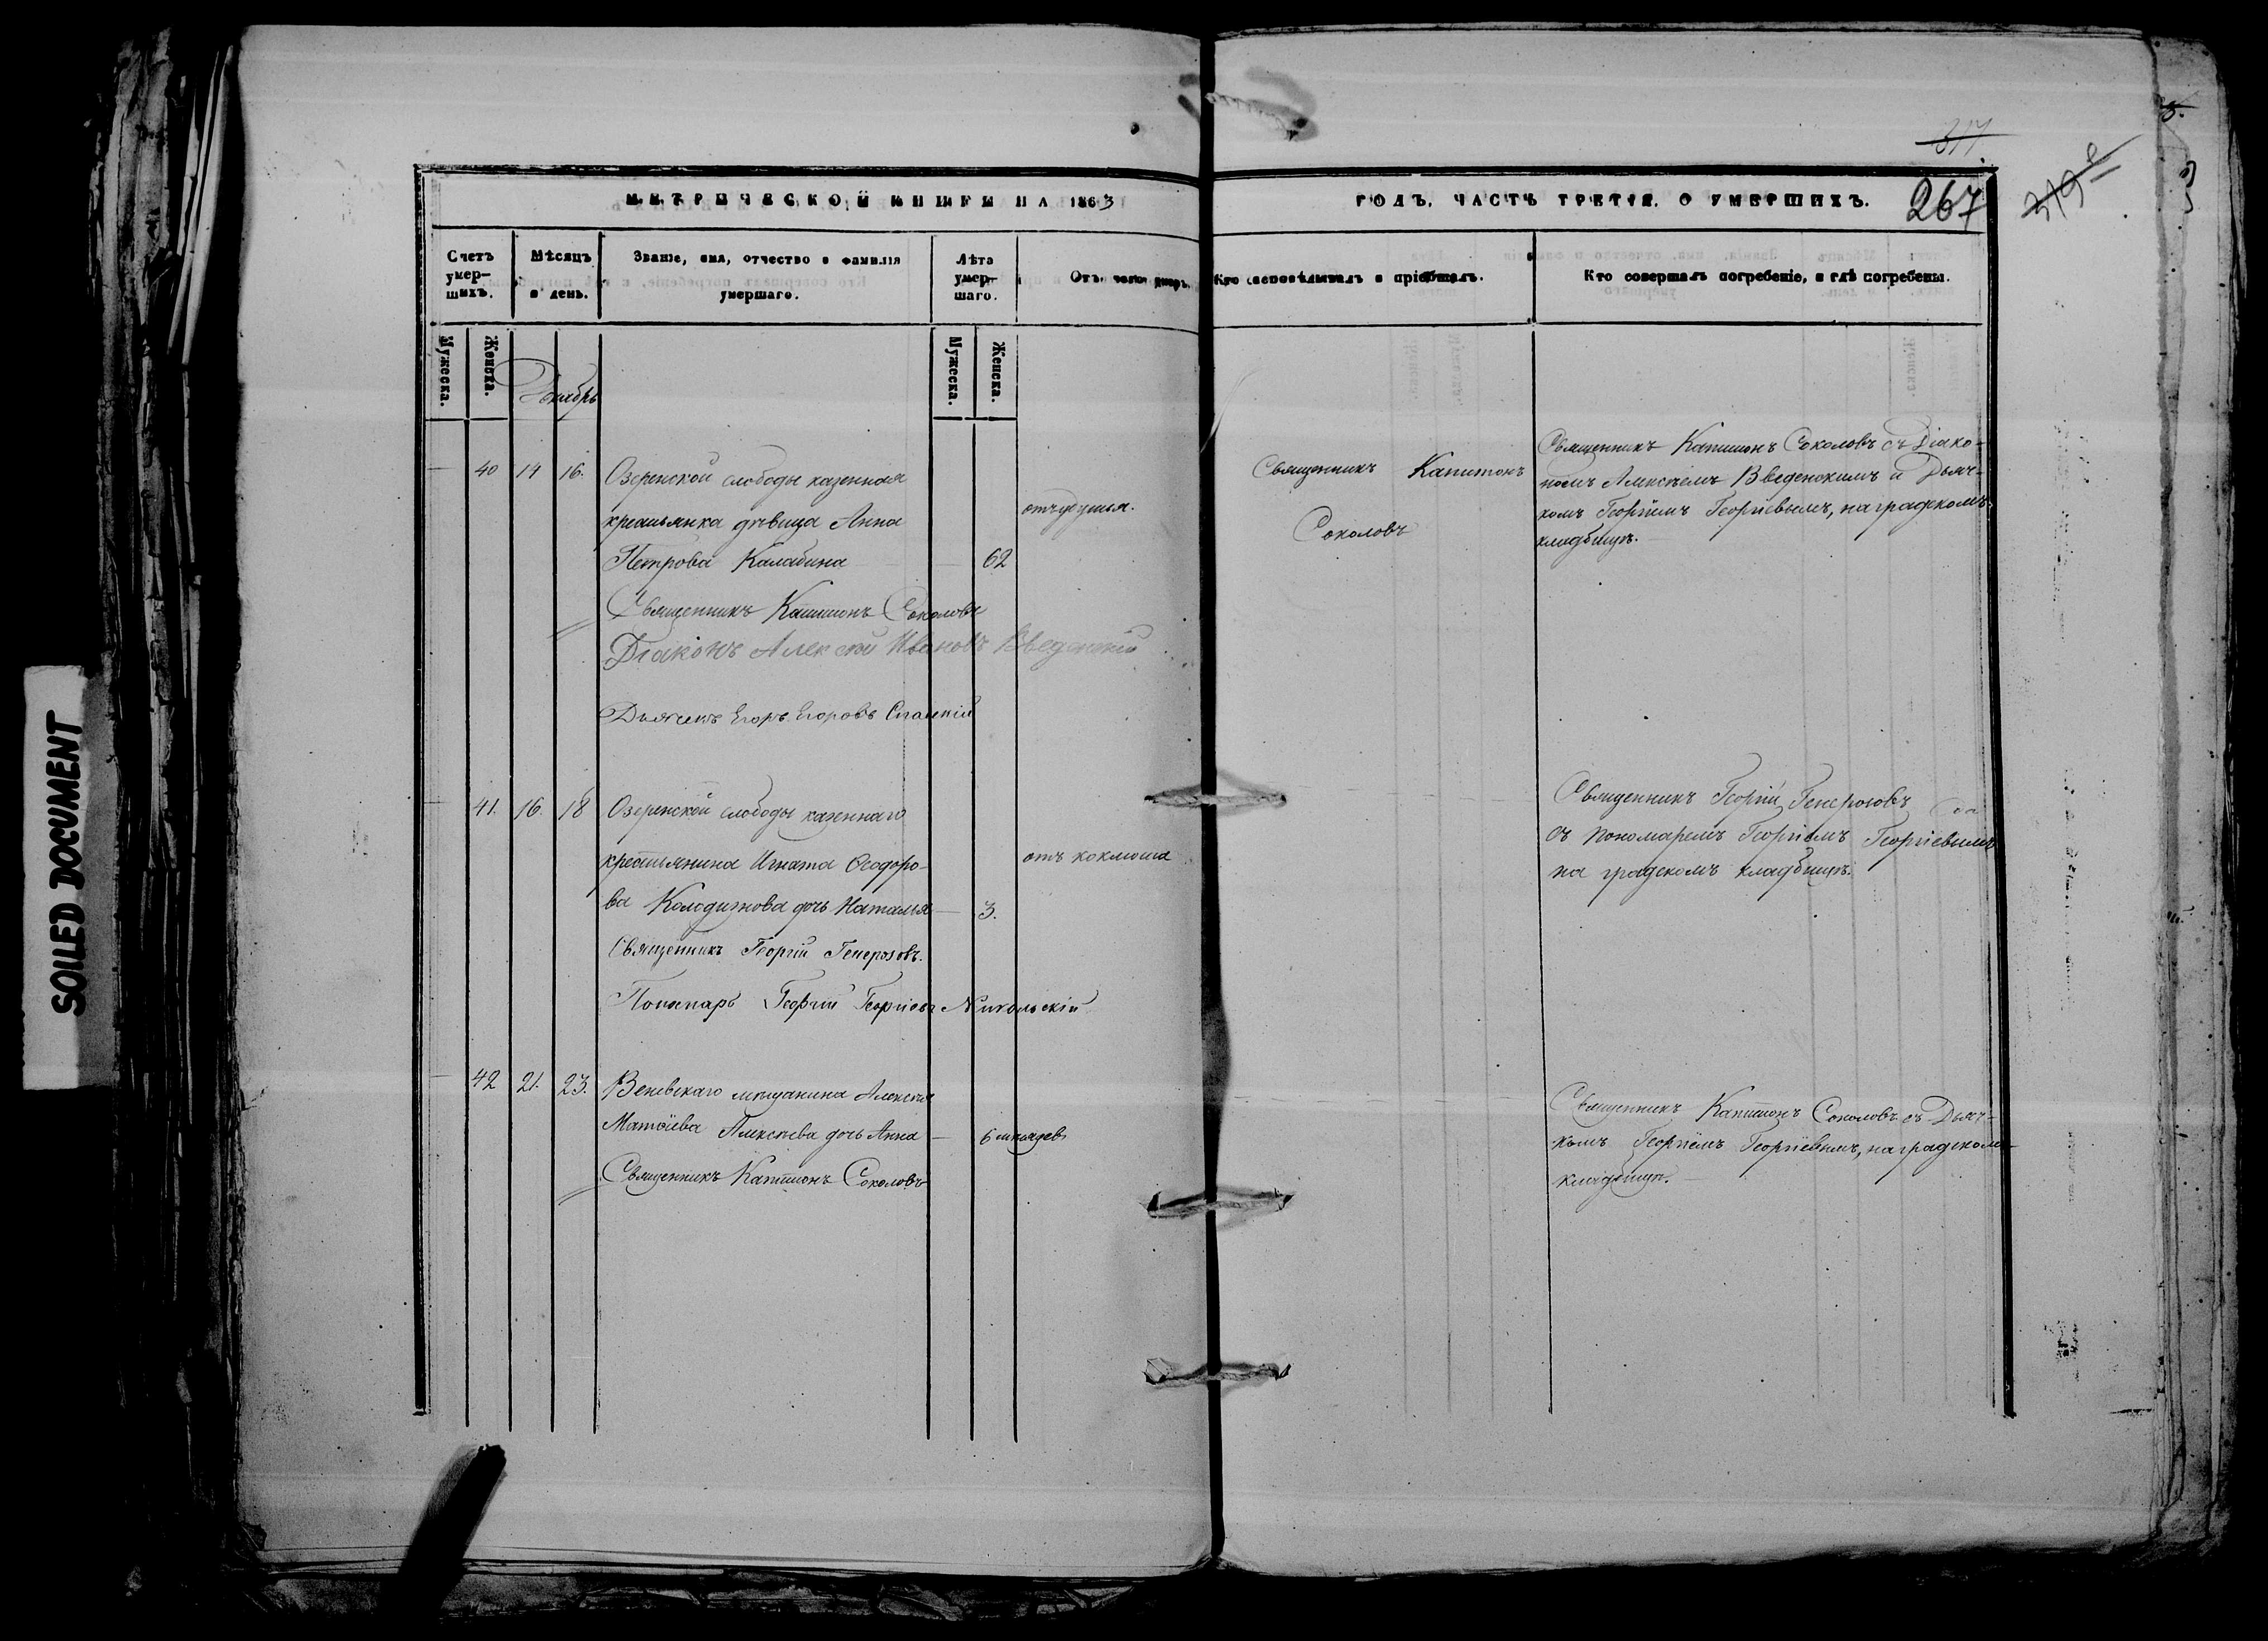 317
319
267
МЕТРИЧЕСКОЙ КНИГИ НА 1863
ГОДЪ. ЧАСТЬ ТРЕТІЯ. О УМЕРШИХЪ.
Счетъ умер-
шихъ.
Мѣсяцъ
и день.
Званіе, имя, отчество и фамилія
умершаго.
Лѣта
умер-
шаго.
Отъ чего умеръ.
Кто исповѣдывалъ и пріобщалъ.
Кто совершалъ погребеніе, и гдѣ погребены.
Мужеска.
Женска.
Мужеска.
Женска.
Декабрь
40 14 16.
Озеренской слободы казенная
крестьянка дѣвица Анна
Петрова Калабина — 62
отъ удушья.
Священникъ Капитонъ
Соколовъ
Священникъ Капитонъ Соколовъ съ Діако-
номъ Алексѣемъ Введенскимъ и Дьяч-
комъ Георгіемъ Георгіевымъ, на градскомъ
кладбищѣ.
Священникъ Капитонъ Соколовъ
Діаконъ Алексѣй Ивановъ Введенскій
Дьячекъ Егоръ Егоровъ Спаскій
41. 16. 18
Озеренской слободы казеннаго
крестьянина Игната Ѳеодоро-
ва Колодизнова дочь Наталья — 3.
отъ коклюша
Священникъ Георгій Генерозовъ
съ пономаремъ Георгіемъ Георгіевымъ
на градскомъ кладбищѣ.
Священникъ Георгій Генерозовъ.
Пономарь Георгій Георгіевъ Никольскій
42 21. 23.
Веневскаго мѣщанина Алексѣя
Матѳіева Алексѣева дочь Анна — 6 мѣсяцевъ
Священникъ Капитонъ Соколовъ съ Дьяч-
комъ Георгіемъ Георгіевымъ, на градскомъ
кладбищѣ.
Священникъ Капитонъ Соколовъ
SOILED DOCUMENT